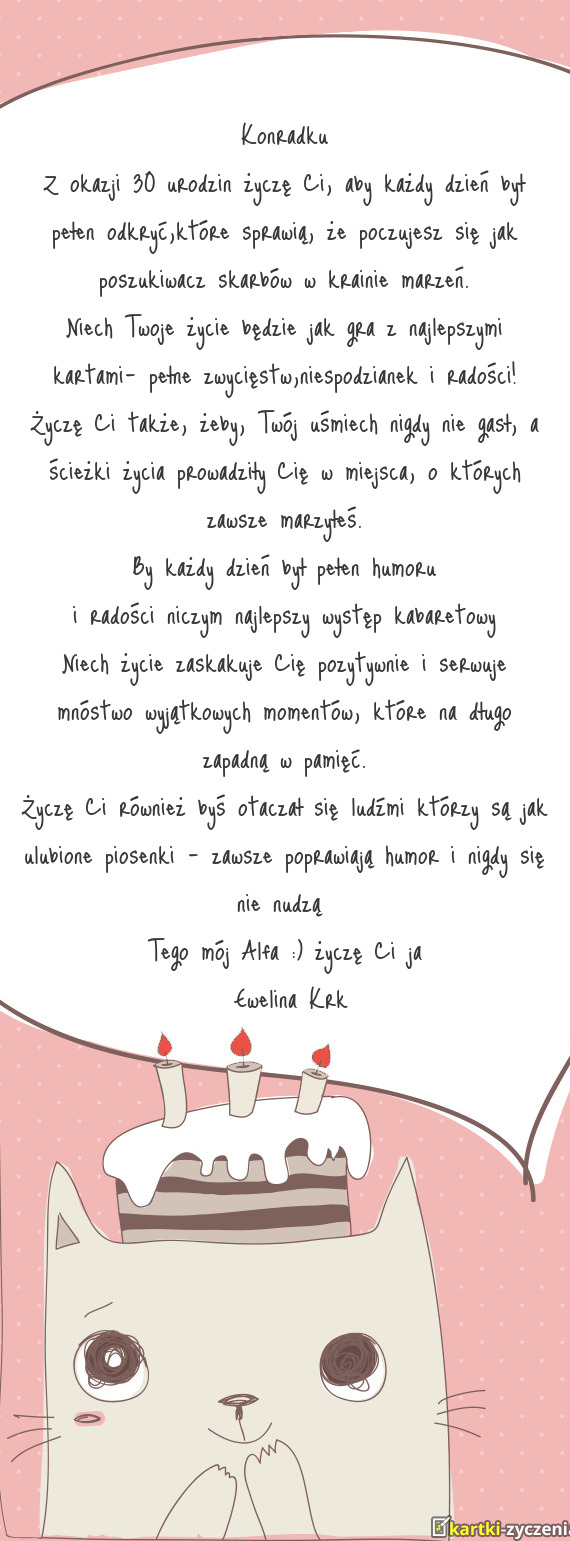 Konradku
Z okazji 30 urodzin życzę Ci, aby każdy dzień był
pełen odkryć,które sprawią, że poczujesz się jak
poszukiwacz skarbów w krainie marzeń.
Niech Twoje życie będzie jak gra z najlepszymi
kartami- pełne zwycięstw,niespodzianek i radości!
Życzę Ci także, żeby, Twój uśmiech nigdy nie gasł, a
ścieżki życia prowadziły Cię w miejsca, o których
zawsze marzyłeś.
By każdy dzień był pełen humoru
i radości niczym najlepszy występ kabaretowy
Niech życie zaskakuje Cię pozytywnie i serwuje
mnóstwo wyjątkowych momentów, które na długo
zapadną w pamięć.
Życzę Ci również byś otaczał się ludźmi którzy są jak
ulubione piosenki - zawsze poprawiają humor i nigdy się
nie nudzą
Tego mój Alfa :) życzę Ci ja
Ewelina Krk
kartki-zyczenia